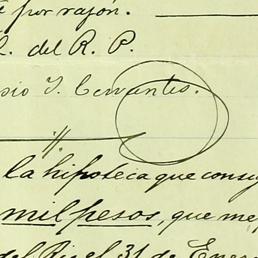 por razón.
del R. P.
sio I. Cervantes.
la hipoteca que consig
mil pesos, que me
del Rio el 31 de Enero